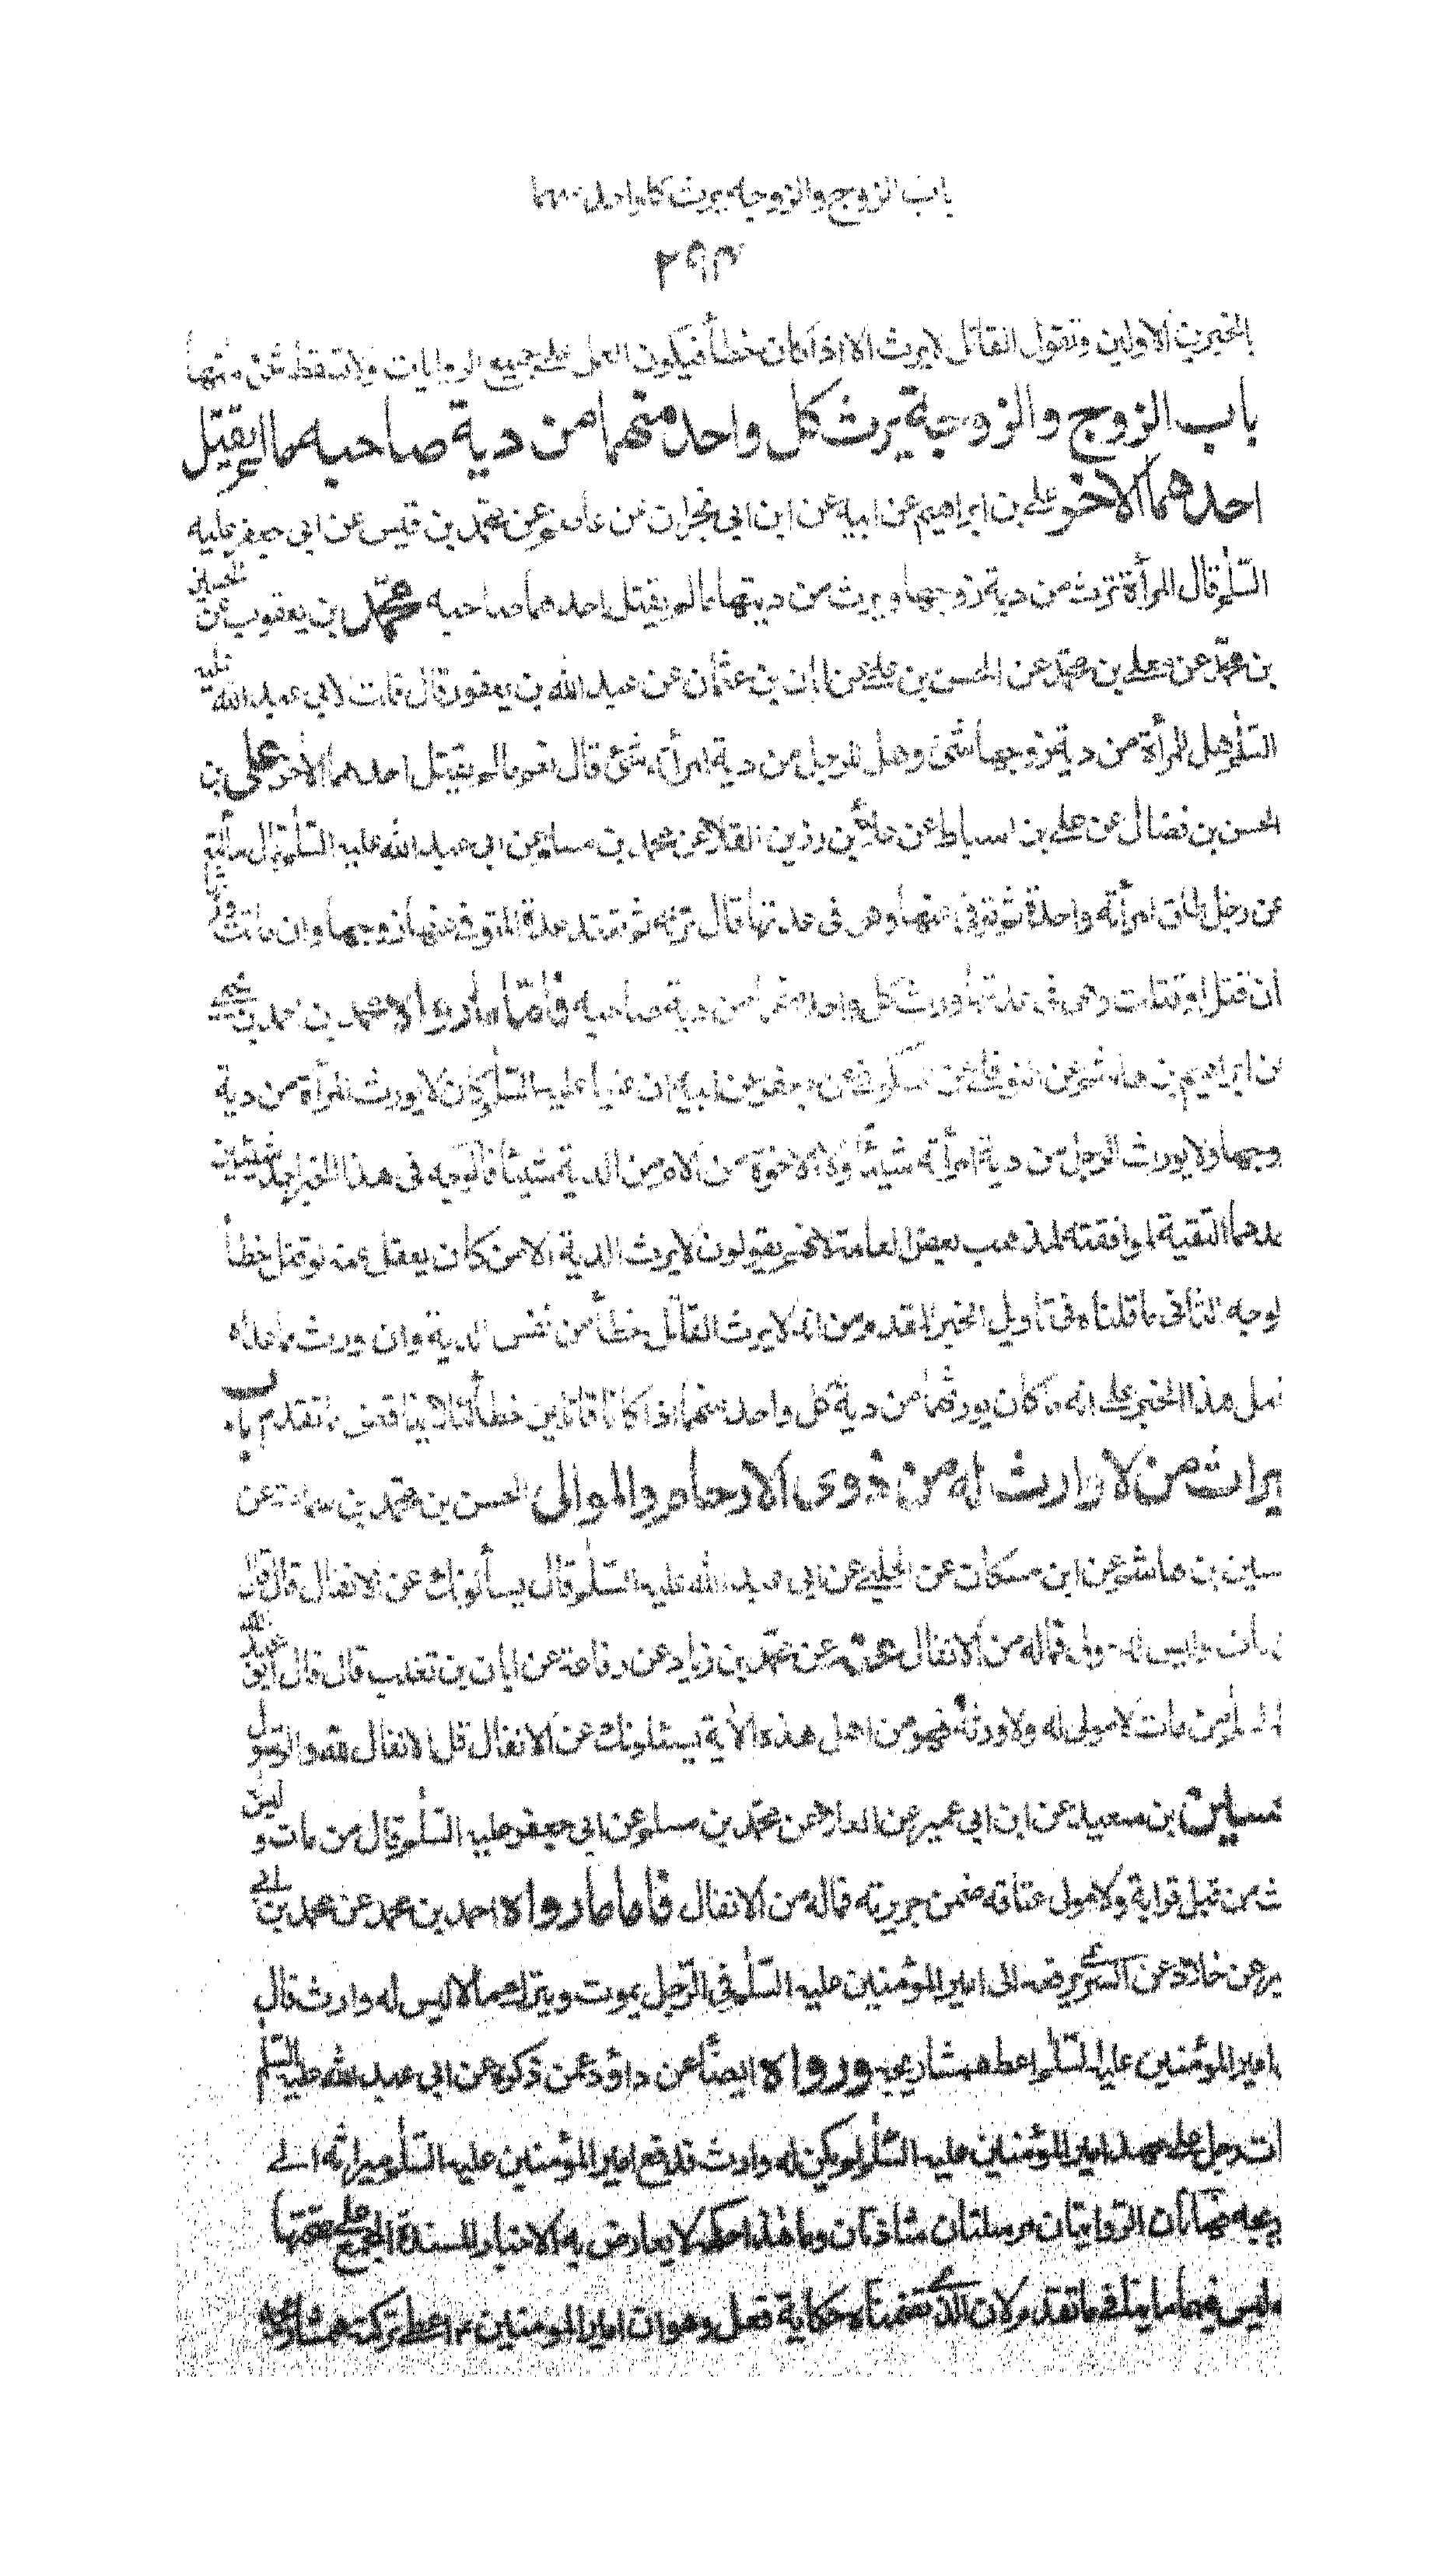 باب الزوج والزوجه يرث كل واحد منهما
٢٩٣
الخبرين الاولين ونقول القاتل لا يرث الا اذا كان خطأ فيكون العمل على جميع الروايات ولا تسقط شئ منها
باب الزوج والزوجة يرث كل واحد منهما من دية صاحبه ما لم يقتل
احدهما الاخر علي بن ابراهيم عن ابيه عن ابن ابي نجران عن عاصم عن محمد بن قيس عن ابي جعفر عليه
السلم قال المرأة ترث من دية زوجها ويرث من ديتها ما لم يقتل احدهما صاحبه محمد بن يعقوب عن الحسين
بن محمد عن معلى بن محمد عن الحسن بن علي عن ابان بن عثمان عن عبد الله بن يعفور قال قلت لابي عبد الله عليه
السلم هل للمرأة من دية زوجها شئ وهل للرجل من دية امرأته شئ قال نعم ما لم يقتل احدهما الاخر علي بن
الحسن بن فضال عن علي بن اسباط عن علاء بن رزين القلا عن محمد بن مسلم عن ابي عبد الله عليه السلم قال سألته
عن رجل طلق امرأته واحدة ثم توفى عنها وهى فى عدتها قال ترثه ثم تعتد عدة المتوفى عنها زوجها وان ماتت ورثها
ان قتل او قتلت وهى فى عدتها ورث كل واحد منهما من دية صاحبه فاما ما رواه محمد بن احمد بن يحيى
عن ابراهيم بن هاشم عن النوفلي عن السكوني عن جعفر عن ابيه ان عليا عليه السلم كان لا يورث المرأة من دية
وجها ولا يورث الرجل من دية امرأته شيئا ولا الاخوة من الام من الدية شيئا فالوجه فى هذا الخبر احد شيئين
دهما التقية لموافقته لمذهب بعض العامة لانهم يقولون لا يرث الدية الا من كان يعقل عنه لو قتل خطأ
لوجه الثانى ما قلناه فى تاويل الخبر المتقدم من انه لا يرث القاتل خطأ من نفس الدية وان ورث مما عداه
نمل هذا الخبر على انه ما كان يورثهما من دية كل واحد منهما اذا كانا قاتلين خطأ لئلا يناقض ما تقدم باب
يراث من لا وارث له من ذوى الارحام والموالى الحسن بن محمد بن سماعة عن
سين بن هاشم عن ابن مسكان عن الحلبي عن ابي عبد الله عليه السلم قال يسألونك عن الانفال قال قال
مات وليس له مولى فماله من الانفال عنه عن محمد بن زياد عن رفاعة عن ابان بن تغلب قال قال ابو عبد الله
السلم من مات لا مولى له ولا ورثة فهو من اهل هذه الاية يسئلونك عن الانفال قل الانفال لله والرسول
سين بن سعيد عن ابن ابي عمير عن العلاء عن محمد بن مسلم عن ابي جعفر عليه السلم قال من مات وليس
ث من قبل قرابة ولا مولى عتاقه ضمن جريرته فماله من الانفال فاما ما رواه احمد بن محمد عن محمد بن ابي
ير عن خلاد عن السري يرفعه الى امير المؤمنين عليه السلم فى الرجل يموت ويترك مالا ليس له وارث قال
امير المؤمنين عليه السلم اعط همشاريجه ورواه ايضا عن داؤد عن ذكره عن ابي عبد الله عليه السلم
ات رجل على عهد امير المؤمنين عليه السلم لم يكن له وارث فدفع امير المؤمنين عليه السلم ميراثه الى
فهاتان الروايتان مرسلتان شاذتان وما هذا حكمه لا يعارض به الاخبار المسندة المجمع على صحتها
وليس فيهما ما ينافي ما تقدم لان الذي تضمناه حكاية فعل وهو ان امير المومنين ع اعطى تركته همشاريجه